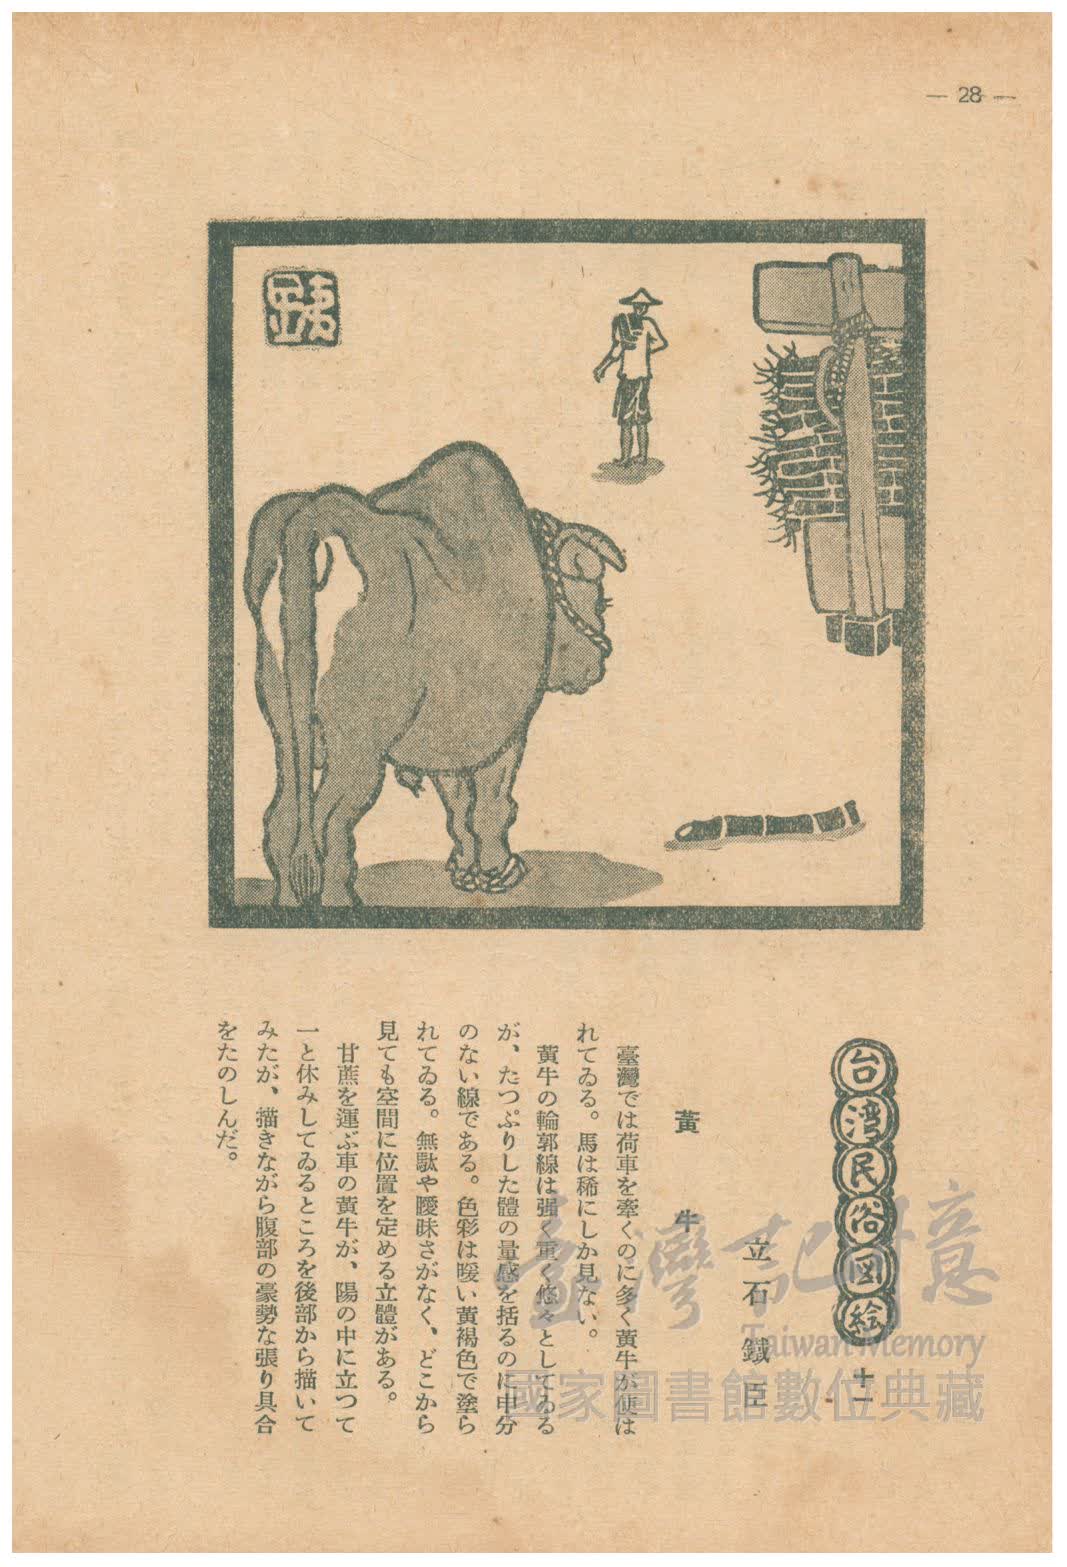 — 28 —
鐵
台湾民俗図絵 十一
立石鐵臣
黃牛
臺灣では荷車を牽くのに多く黃牛が使は
れてゐる。馬は稀にしか見ない。
黃牛の輪郭線は强く重く悠々としてゐる
が、たつぷりした體の量感を括るのに申分
のない線である。色彩は暖い黃褐色で塗ら
れてゐる。無駄や曖昧さがなく、どこから
見ても空間に位置を定める立體がある。
甘蔗を運ぶ車の黃牛が、陽の中に立つて
一と休みしてゐるところを後部から描いて
みたが、描きながら腹部の豪勢な張り具合
をたのしんだ。
臺灣記憶
Taiwan Memory
國家圖書館數位典藏